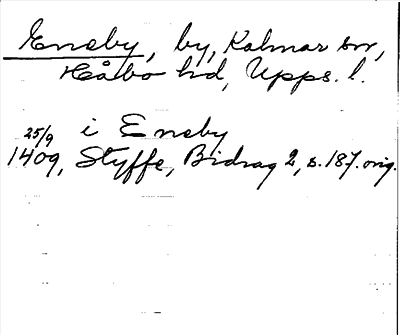 Eneby, by, Kalmar sn,
Håbo hd, Upps. l.
25/9 i Eneby
1409, Styffe, Bidrag 2, s. 187. orig.